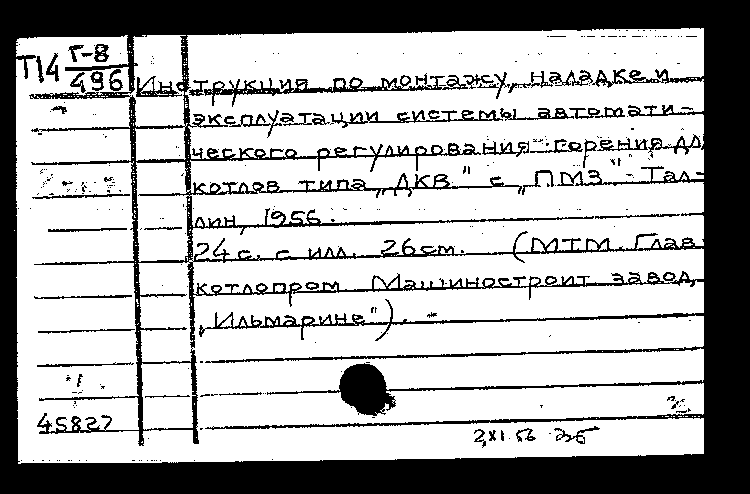 Т14 Г-8
496
Инструкция по монтажу, наладке и
эксплуатации системы автомати-
ческого регулирования горения для
котлов типа „ДКВ" с „ПМЗ" - Тал-
лин, 1956.
24 с. с илл. 26 см. (МТМ. Глав-
котлопром Машиностроит завод,
„Ильмарине"). -
45827
2/XI 56